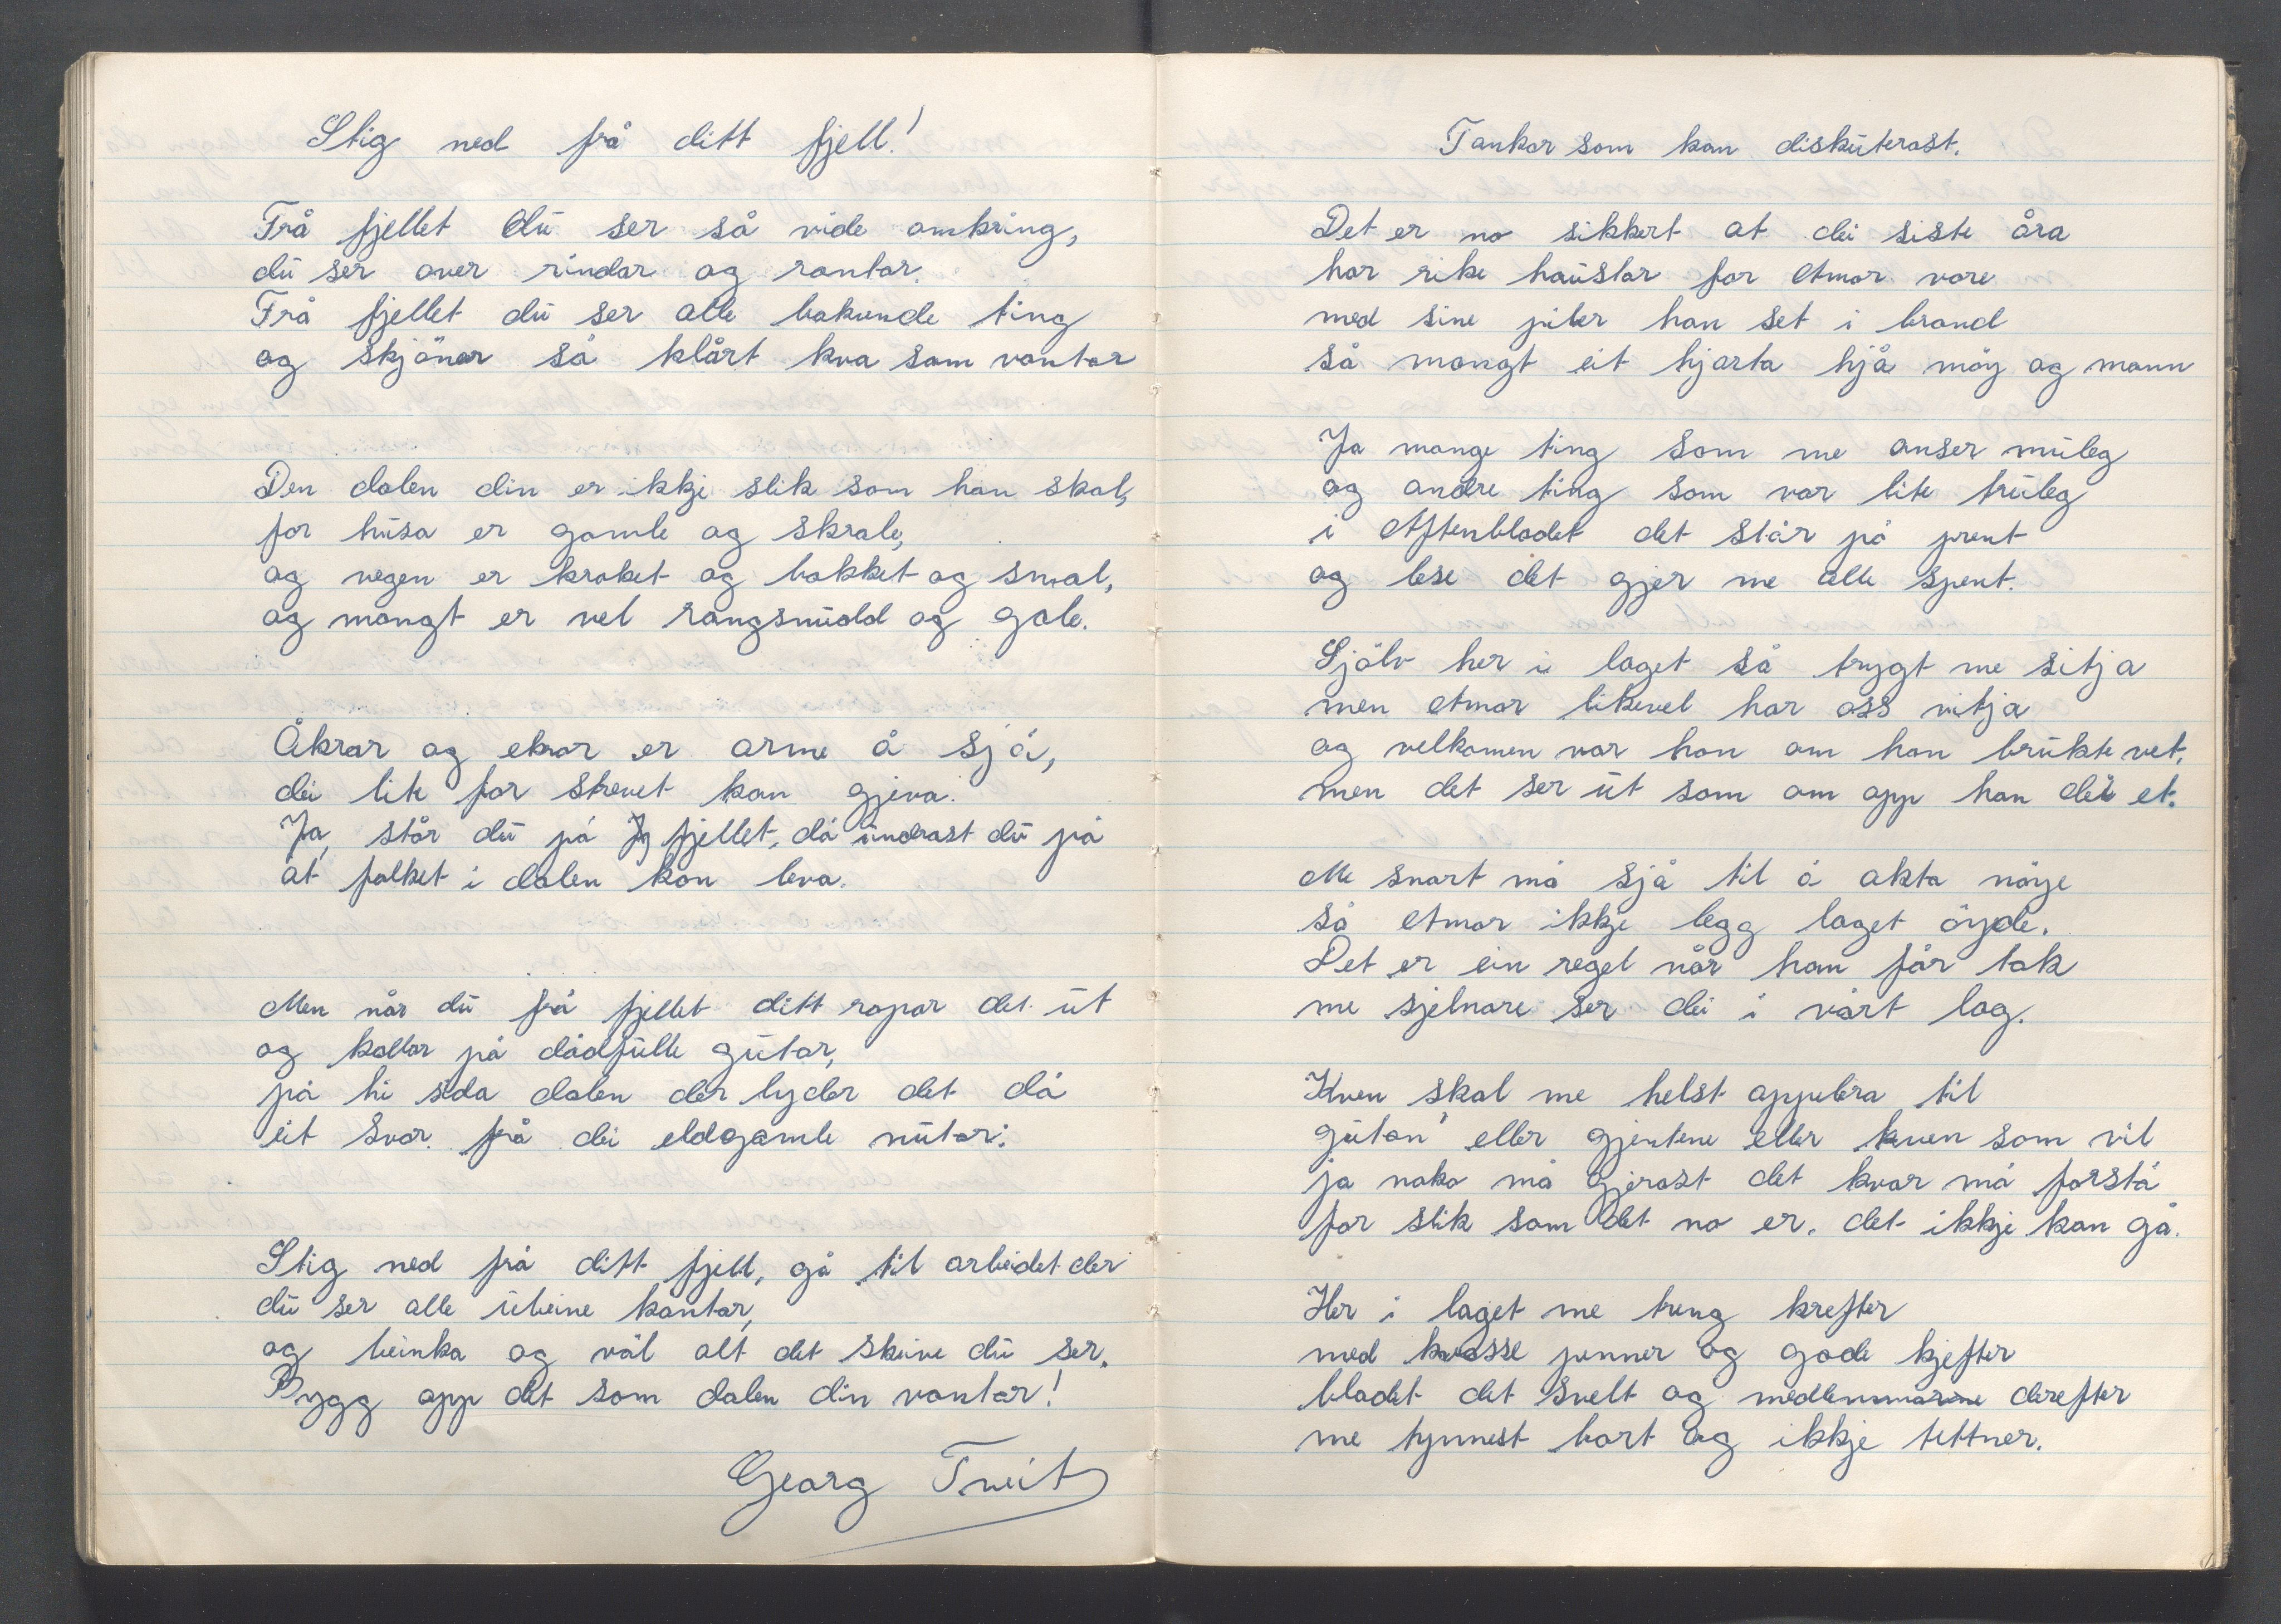 Stig ned frå ditt fjell!
Frå fjellet du ser så vide omkring,
du ser over rindar og rantar.
Frå fjellet du ser alle bakvende ting
og skjönar så klårt kva som vantar
Den dalen din er ikkje slik som han skal,
for husa er gamle og skrale,
og vegen er kraket og bakket og smal,
og mangt er vel rangsnudd og gale.
Åkrar og ekrar er arme å sjå,
dei lite for strevet kan gjeva.
Ja, står du på fjellet, då undrast du på
at folket i dalen kan leva.
Men når du frå fjellet ditt ropar det ut
og kallar på dådfulle gutar,
på hi sida dalen der lyder det då
eit svar frå dei eldgamle nutar:
Stig ned frå ditt fjell, gå til arbeidet der
du ser alle ubeine kantar,
og beinka og vål alt det skeive du ser.
Bygg opp det som dalen din vantar!
Georg Tveit
Tankar som kan diskuterast.
Det er no sikkert at dei siste åra
har rike haustar for Amor vore
med sine piler han set i brand
så mangt eit hjarta hjå möy og mann
Ja mange ting som me anser muleg
og andre ting som var lite truleg
i Aftenbladet det står på prent
og lese det gjer me alle spent.
Sjölv her i laget så trygt me sitja
men Amor likevel har oss vitja
og velkomen var han om han brukte vet,
men det ser ut som om opp han dei et.
Me snart må sjå til å akta nöye
så Amor ikkje legg laget öyde.
Det er ein regel når han får tak
me sjelnare ser dei i vårt lag.
Kven skal me helst appelera til
gutan' eller gjentene eller kven som vil
ja noko må gjerast det kvar må forstå
for slik som det no er, det ikkje kan gå.
Her i laget me treng krefter
med kvasse penner og gode kjefter
bladet det svelt og medlemmarne derefter
me tynnest bort og ikkje tettner.